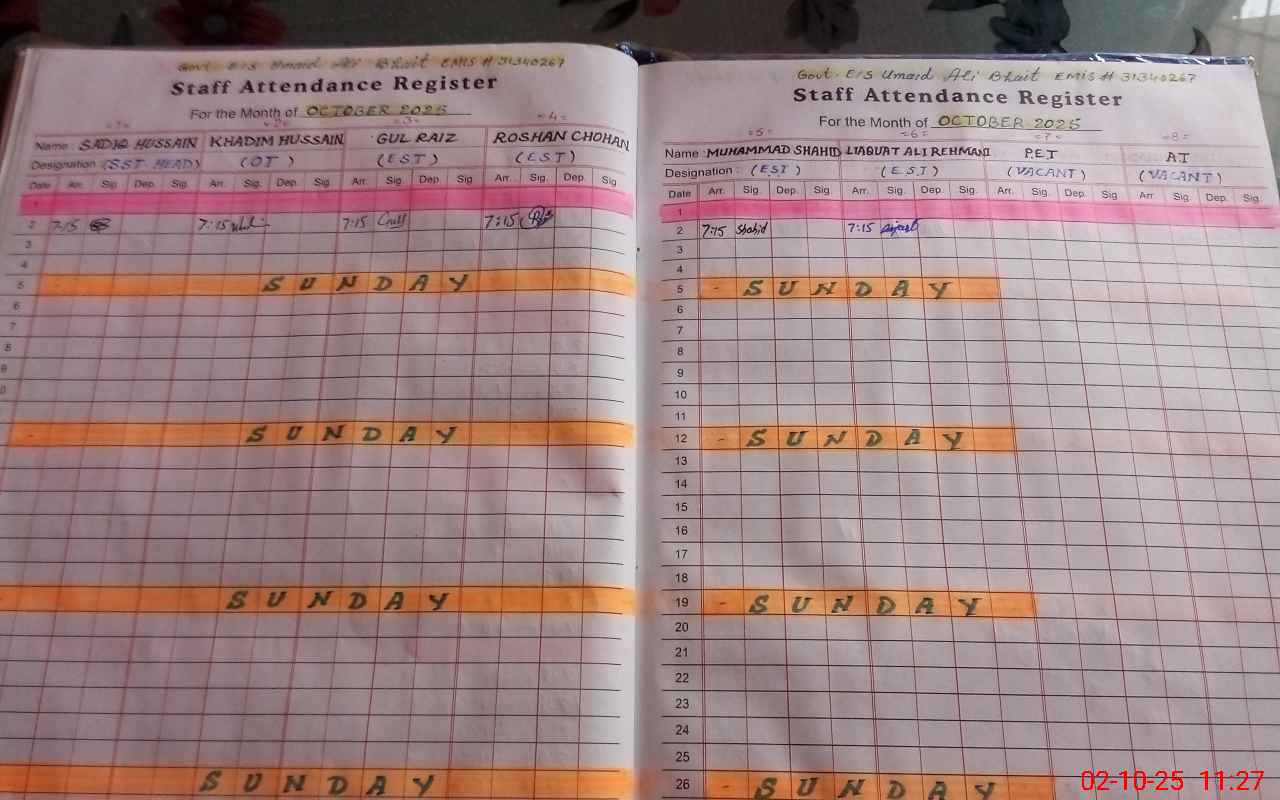 Govt. E/S Umaid Ali Bhait EMIS # 31340267
Staff Attendance Register
For the Month of OCTOBER 2025
=1= =2= =3= =4=
Name: SADIQ HUSSAIN KHADIM HUSSAIN GUL RAIZ ROSHAN CHOHAN
Designation: (SST HEAD) (OT) (EST) (EST)
Date Arr. Sig. Dep. Sig. Arr. Sig. Dep. Sig. Arr. Sig. Dep. Sig. Arr. Sig. Dep. Sig
1
2 7:15 7:15 7:15 7:15
3
4
5 SUNDAY
6
7
8
9
0
SUNDAY
SUNDAY
SUNDAY
Govt. E/S Umaid Ali Bhait EMIS # 31340267
Staff Attendance Register
For the Month of OCTOBER 2025
=5= =6= =7= =8=
Name: MUHAMMAD SHAHID LIAQUAT ALI REHMANI P.E.T AT
Designation: (EST) (E.S.T) (VACANT) (VACANT)
Date Arr. Sig. Dep. Sig. Arr. Sig. Dep. Sig. Arr. Sig. Dep. Sig. Arr. Sig. Dep. Sig.
1
2 7:15 Shahid 7:15
3
4
5 - SUNDAY
6
7
8
9
10
11
12 - SUNDAY
13
14
15
16
17
18
19 - SUNDAY
20
21
22
23
24
25
26 - SUNDAY
02-10-25 11:27